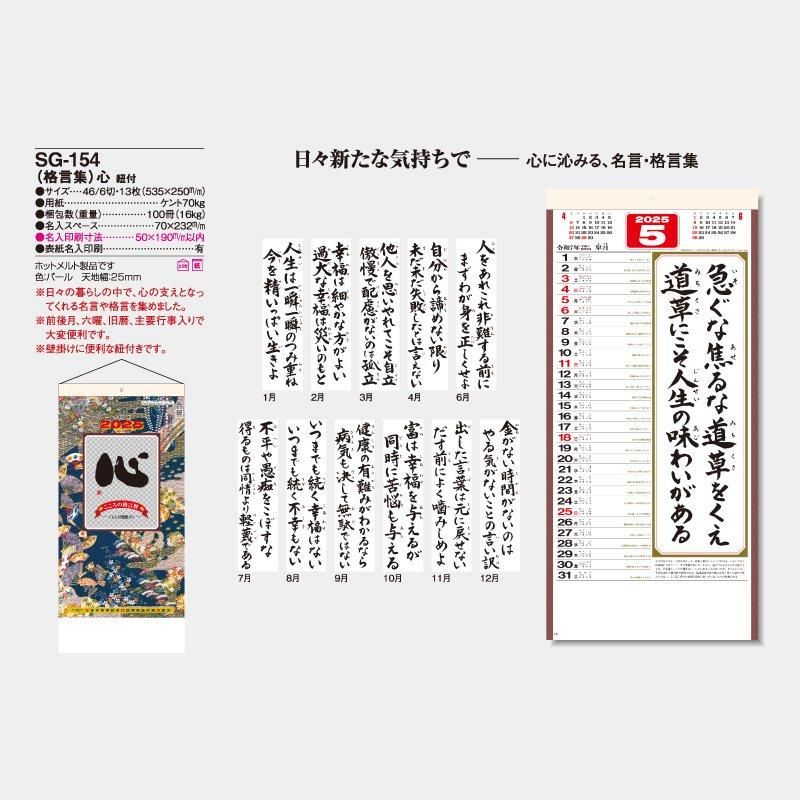 SG-154
(格言集)心 紐付
●サイズ‥‥46/6切・13枚(535×250m/m)
●用紙‥‥‥‥‥‥‥‥‥‥ケント70kg
●梱包数(重量)‥‥‥‥100冊(16kg)
●名入スペース‥‥‥‥70×232m/m
●名入印刷寸法‥‥50×190m/m以内
●表紙名入印刷‥‥‥‥‥‥‥‥‥有
ホットメルト製品です
色:パール 天地幅:25mm
※日々の暮らしの中で、心の支えとなっ
てくれる名言や格言を集めました。
※前後月、六曜、旧暦、主要行事入りで
大変便利です。
※壁掛けに便利な紐付きです。
日々新たな気持ちで ── 心に沁みる、名言・格言集
人生は一瞬一瞬のつみ重ね
今を精いっぱい生きよ
1月
幸福は細やかな方がよい
過大な幸福は災いのもと
2月
他人を思いやれてこそ自立
傲慢で配慮がないのは孤立
3月
自分から諦めない限り
未だ未だ失敗したとは言えない
4月
人をあれこれ非難する前に
まずわが身を正しくせよ
6月
不平や愚痴をこぼすな
得るものは同情より軽蔑である
7月
いつまでも続く幸福はない
いつまでも続く不幸もない
8月
健康の有難みがわかるなら
病気も決して無駄ではない
9月
富は幸福を与えるが
同時に苦悩も与える
10月
出した言葉は元に戻せない
だす前によく噛みしめよ
11月
金がない時間がないのは
やる気がないことの言い訳
12月
2025
心
こころの格言集
4
2025
5
6
令和7年
皐月
急ぐな焦るな道草をくえ
道草にこそ人生の味わいがある
1 木
2 金
3 土
4 日
5 月
6 火
7 水
8 木
9 金
10 土
11 日
12 月
13 火
14 水
15 木
16 金
17 土
18 日
19 月
20 火
21 水
22 木
23 金
24 土
25 日
26 月
27 火
28 水
29 木
30 金
31 土